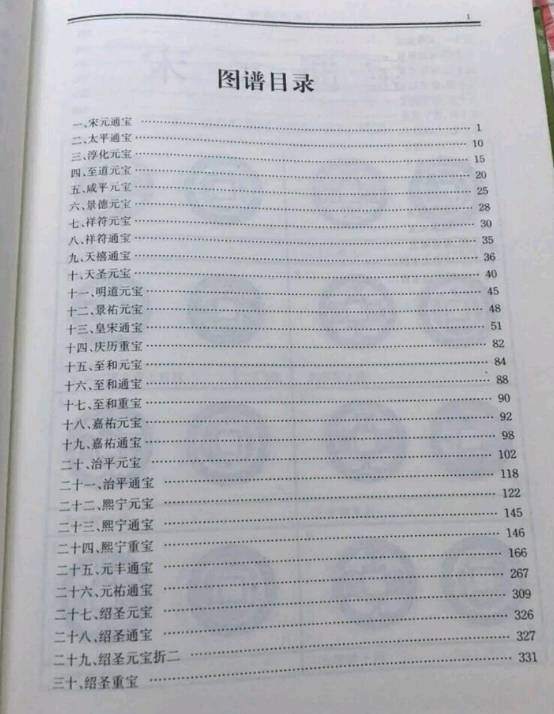 1
图谱目录
一、宋元通宝 ························ 1
二、太平通宝 ························ 10
三、淳化元宝 ························ 15
四、至道元宝 ························ 20
五、咸平元宝 ························ 25
六、景德元宝 ························ 28
七、祥符元宝 ························ 30
八、祥符通宝 ························ 35
九、天禧通宝 ························ 36
十、天圣元宝 ························ 40
十一、明道元宝 ························ 45
十二、景祐元宝 ························ 48
十三、皇宋通宝 ························ 51
十四、庆历重宝 ························ 82
十五、至和元宝 ························ 84
十六、至和通宝 ························ 88
十七、至和重宝 ························ 90
十八、嘉祐元宝 ························ 92
十九、嘉祐通宝 ························ 98
二十、治平元宝 ························ 102
二十一、治平通宝 ························ 118
二十二、熙宁元宝 ························ 122
二十三、熙宁通宝 ························ 145
二十四、熙宁重宝 ························ 146
二十五、元丰通宝 ························ 166
二十六、元祐通宝 ························ 267
二十七、绍圣元宝 ························ 309
二十八、绍圣通宝 ························ 326
二十九、绍圣元宝折二 ························ 327
三十、绍圣重宝 ························ 331